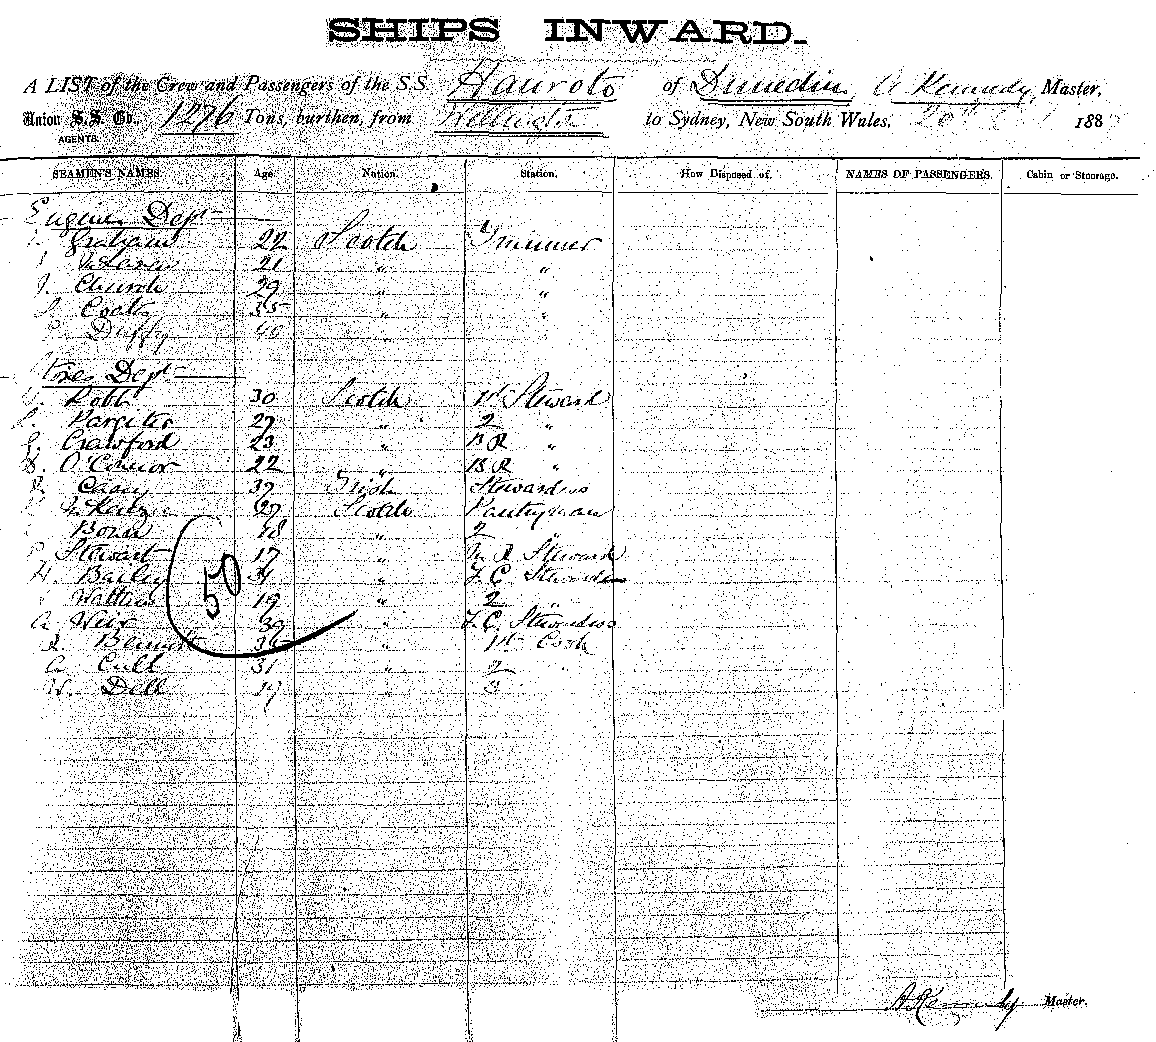 SHIPS INWARD.
A LIST of the Crew and Passengers of the S.S. Hauroto of Dunedin, A Kennedy, Master,
Union S.S. Co., 1276 Tons, burthen, from Wellington to Sydney, New South Wales, 20th 188
AGENTS.
SEAMEN'S NAMES. Age. Nation. Station. How Disposed of. NAMES OF PASSENGERS. Cabin or Steerage.
Engine Dept
Graham 22 Scotch Trimmer
21 " "
J. Church 29 " "
J. Coats 35 " "
Duffy 40
Dept
Robb 30 Scotch 1st Steward
Pargiter 27 " 2 "
G. Crawford 23 " B R "
D. O'Connor 22 " B R "
Casey 39 Irish Stewardess
27 Scotch Pantryman
18 " 2 "
Stewart 17 " M R Steward
H. Bailey 34 " F. C. Steward
19 " 2 "
A. Weir 39 " F. C. Stewardess
50
R Bennett " 1st Cook
G. Cull 31 " 2 "
W. Dell 19 " 3
A Kennedy Master.